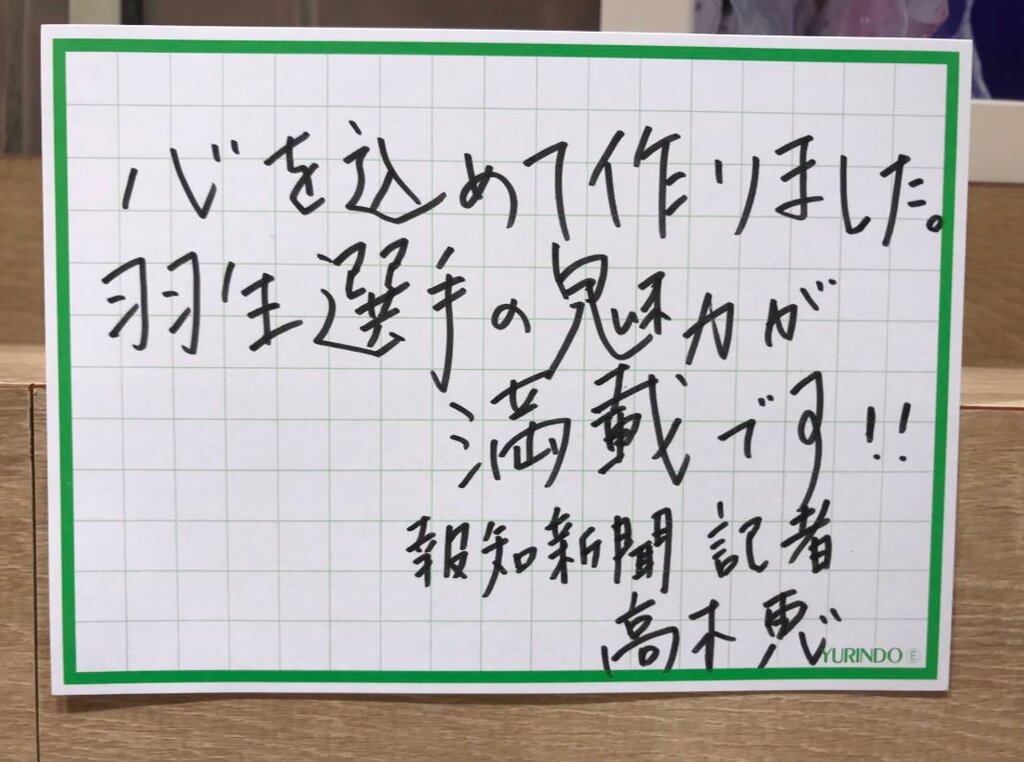 心を込めて作りました。
羽生選手の魅力が
満載です!!
報知新聞 記者
高木 恵
YURINDO E